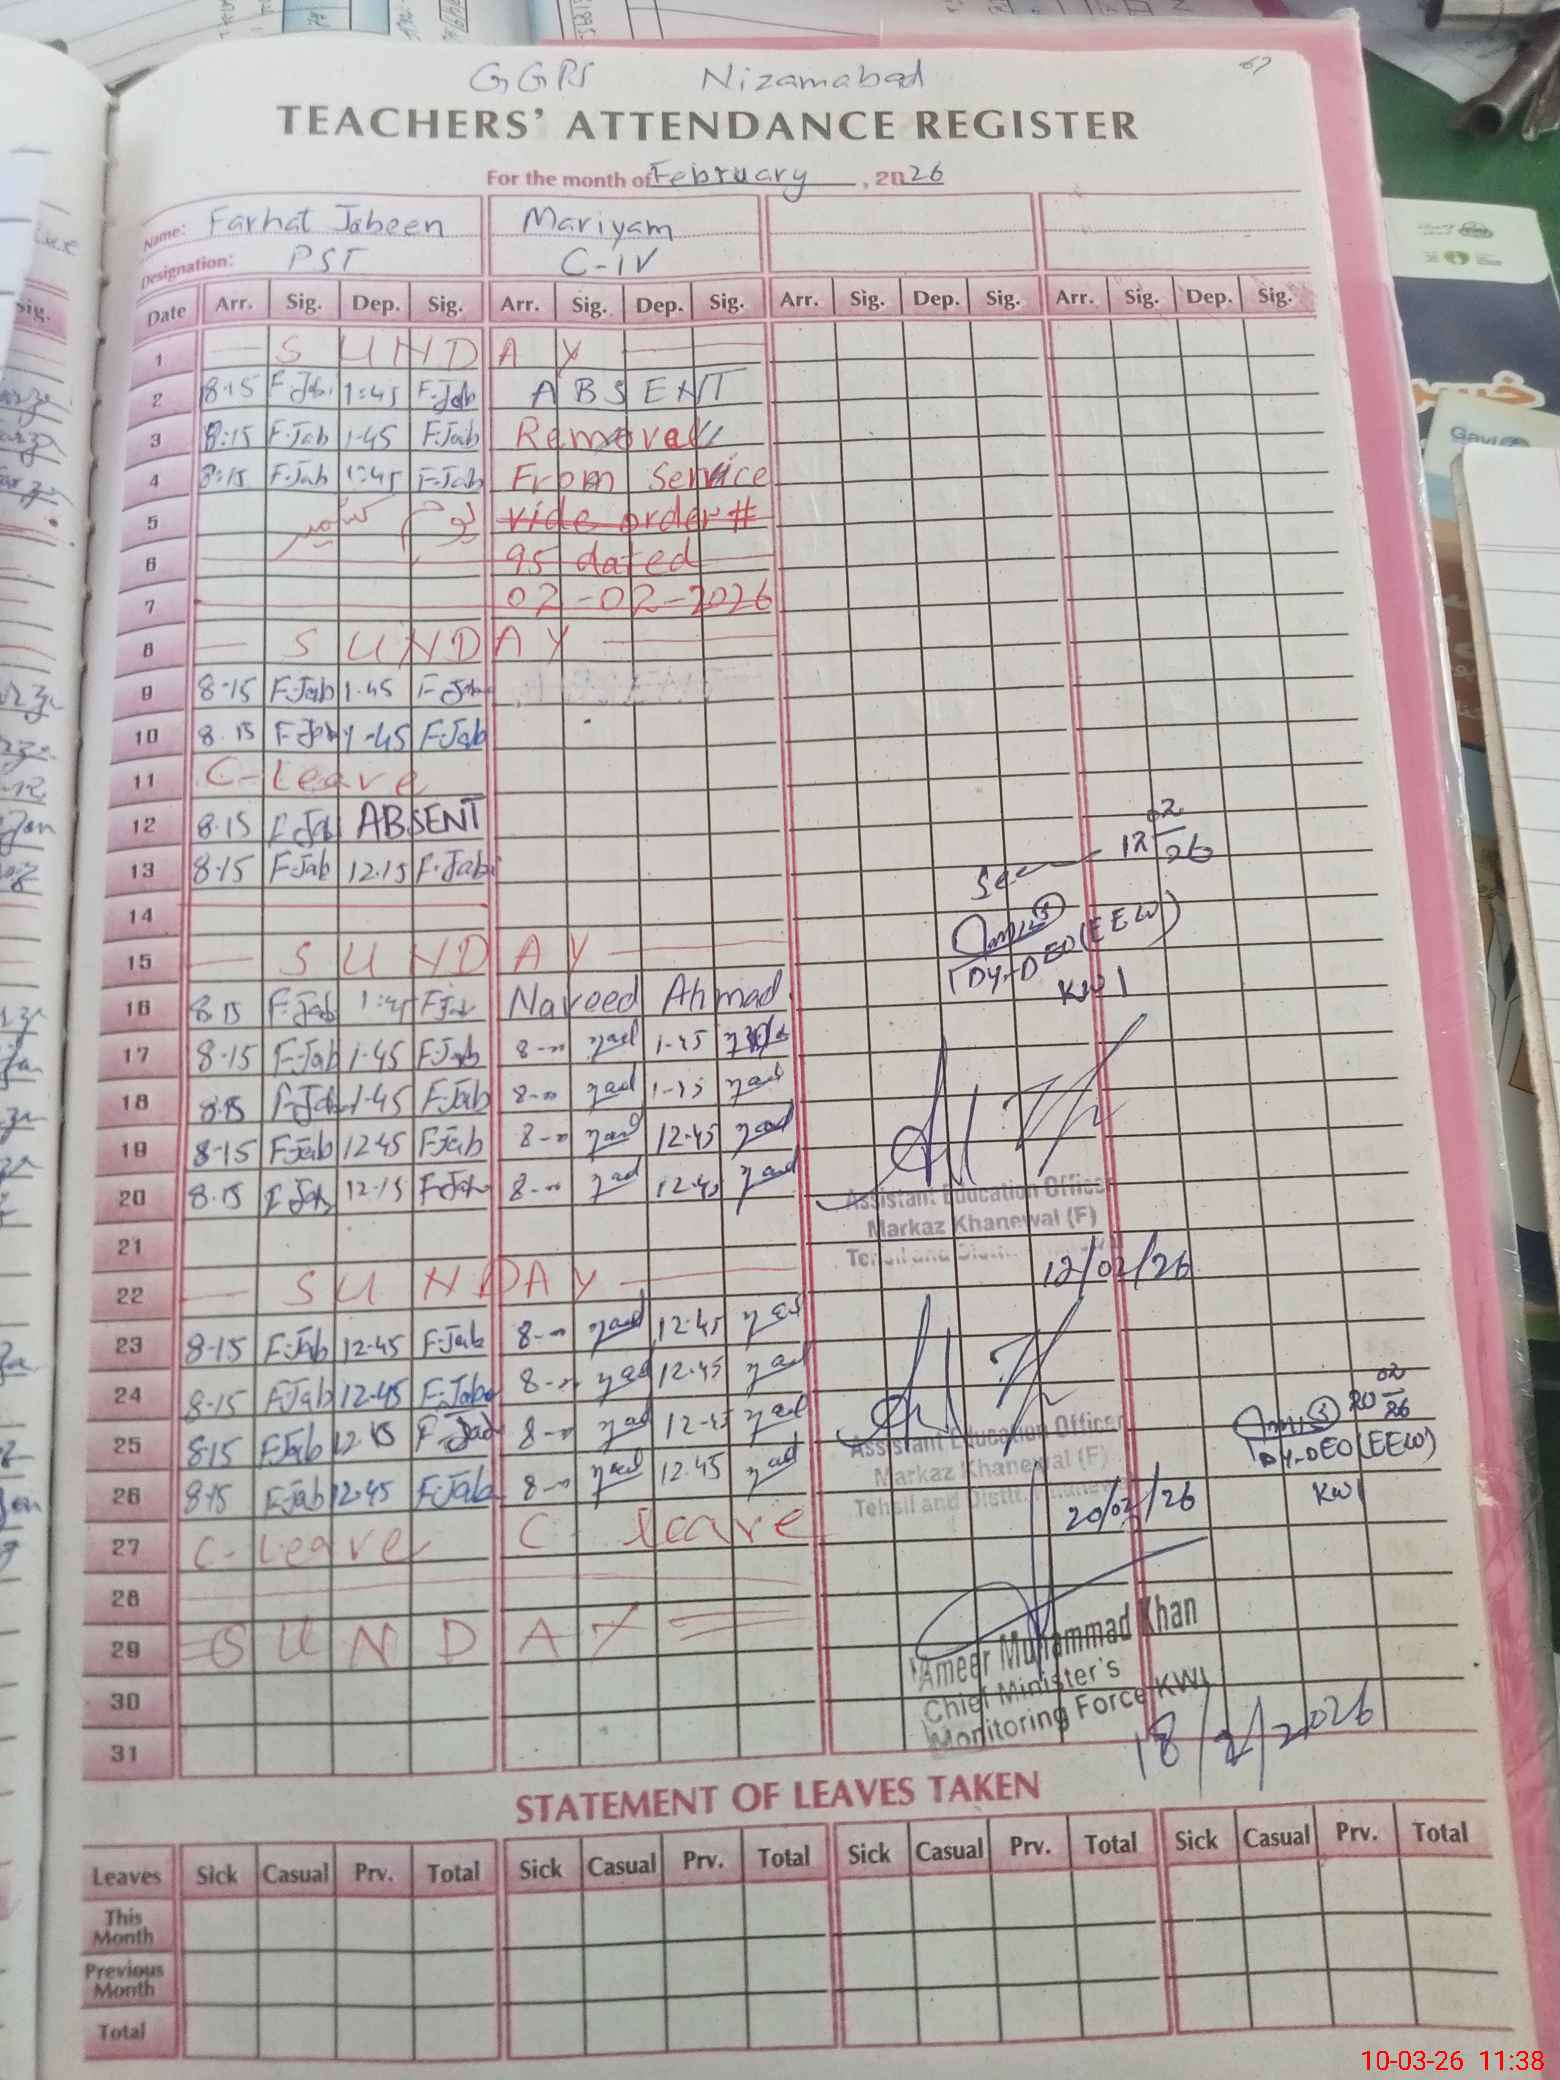 GGPS Nizamabad
67
TEACHERS' ATTENDANCE REGISTER
For the month of February, 2026
Name: Farhat Jabeen Mariyam
Designation: PST C-IV
Date Arr. Sig. Dep. Sig. Arr. Sig. Dep. Sig. Arr. Sig. Dep. Sig. Arr. Sig. Dep. Sig.
1 — SUNDAY —
2 8-15 F-Jab 1:45 F-Jab ABSENT
3 8:15 F-Jab 1-45 F-Jab Removal
4 8:15 F-Jab 1:45 F-Jab From Service
5 vide order #
6 95 dated
7 02-02-2026
8 — SUNDAY —
9 8-15 F-Jab 1.45 F-Jab
10 8.15 F-Jab 1-45 F-Jab
11 C-Leave
12 8.15 F-Jab ABSENT
13 8-15 F-Jab 12.15 F-Jab
14
15 — SUNDAY —
16 8.15 F-Jab 1:45 F-Jab Naveed Ahmad
17 8-15 F-Jab 1-45 F-Jab 8- 1-45
18 8.15 F-Jab 1-45 F-Jab 8-
19 8-15 F-Jab 12-45 F-Jab 8- 12-45
20 8.15 F-Jab 12-15 F-Jab 8- 12-45
21
22 — SUNDAY —
23 8-15 F-Jab 12-45 F-Jab 8- 12-45
24 8-15 F-Jab 12-45 F-Jab 8- 12-45
25 8-15 F-Jab 12 15 F-Jab 8- 12-45
26 8-15 F-Jab 12-45 F-Jab 8- 12.45
27 C-Leave C-leave
28
29 SUNDAY
30
31
Seen 12 02/26
DY-DEO(EEW)
KWl
Assistant Education Officer
Markaz Khanewal (F)
Tehsil and
12/02/26
Assistant Education Officer
Markaz Khanewal (F)
Tehsil and Distt.
20/02/26
20 02/26
DY-DEO(EEW)
KWl
Ameer Muhammad Khan
Chief Minister's
Monitoring Force KWL
18/2/2026
STATEMENT OF LEAVES TAKEN
Leaves Sick Casual Prv. Total Sick Casual Prv. Total Sick Casual Prv. Total Sick Casual Prv. Total
This Month
Previous Month
Total
10-03-26 11:38